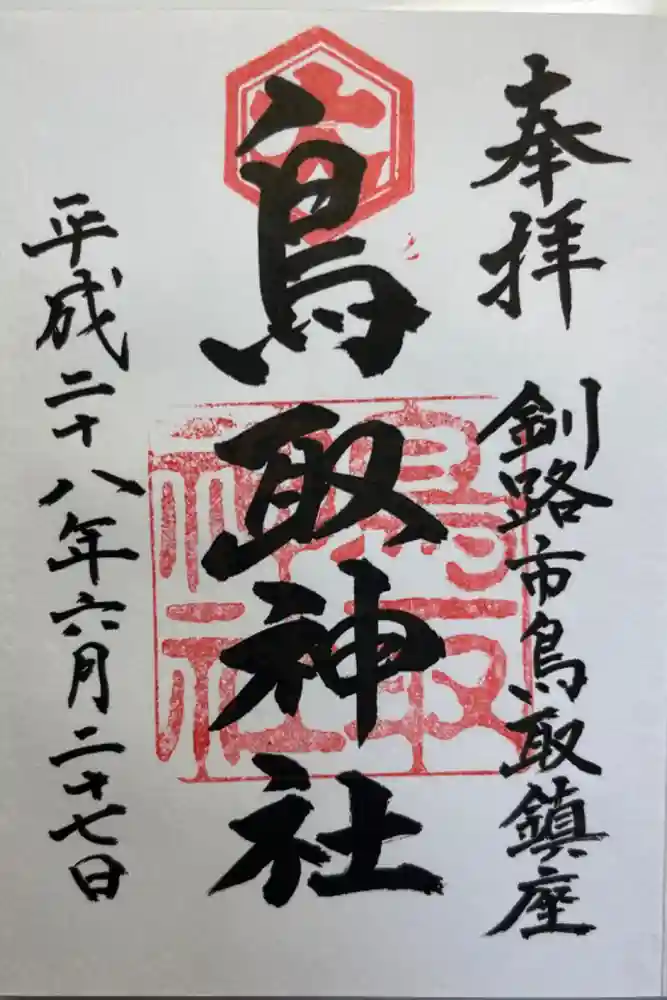 奉拝
釧路市鳥取鎮座
鳥取神社
鳥取神社
平成二十八年六月二十七日